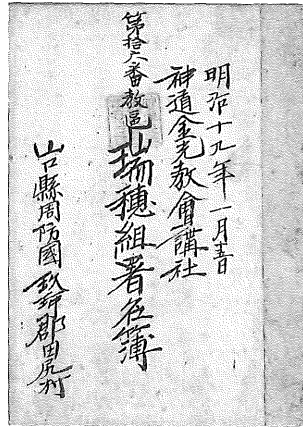 明治十九年一月吉日
神道金光教會講社
第拾六番教區
山瑞穂組署名簿
山口縣周防國玖珂郡田尻村